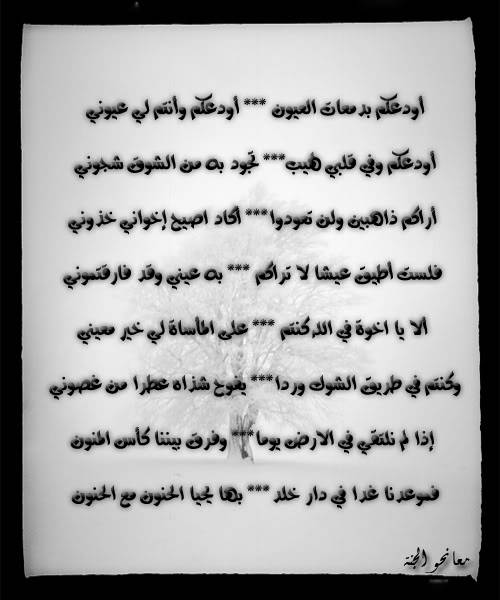 أودعكم بدمعات العيون *** أودعكم وأنتم لي عيوني
أودعكم وفي قلبي لهيب*** تجود به من الشوق شجوني
أراكم ذاهبين ولن تعودوا*** أكاد اصيح إخواني خذوني
فلست أطيق عيشا لا تراكم *** به عيني وقد فارقتموني
ألا يا اخوة في الله كنتم *** على المأساة لي خير معيني
وكنتم في طريق الشوك وردا*** يفوح شذاه عطرا من غصوني
إذا لم نلتقي في الارض يوما*** وفرق بيننا كأس المنون
فموعدنا غدا في دار خلد *** بها يحيا الحنون مع الحنون
معا نحو الجنة